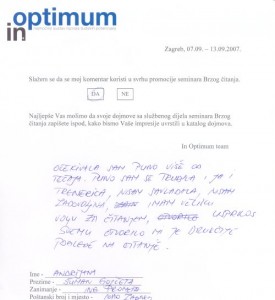 optimum
in
Zagreb, 07.09. – 13.09.2007.
Slažem se da se moj komentar koristi u svrhu promocije seminara Brzog čitanja.
DA NE
Najljepše Vas molimo da svoje dojmove sa službenog dijela seminara Brzog
čitanja zapišete ispod, kako bismo Vaše impresije uvrstili u katalog dojmova.
In Optimum team
OČEKIVALA SAM PUNO VIŠE OD
PUNO SAM SE TRUDILA I JA I
TRENERICA, NISAM SAVLADALA, NISAM
ZADOVOLJNA, IMAM VELIKU
VOLJU ZA ČITANJEM, USPRKOS
SVEMU OTVORILO MI JE DRUGAČIJE
POGLEDE NA ČITANJE.
Ime - ANONIMNA
Prezime -
Zanimanje -
Poštanski broj i mjesto -